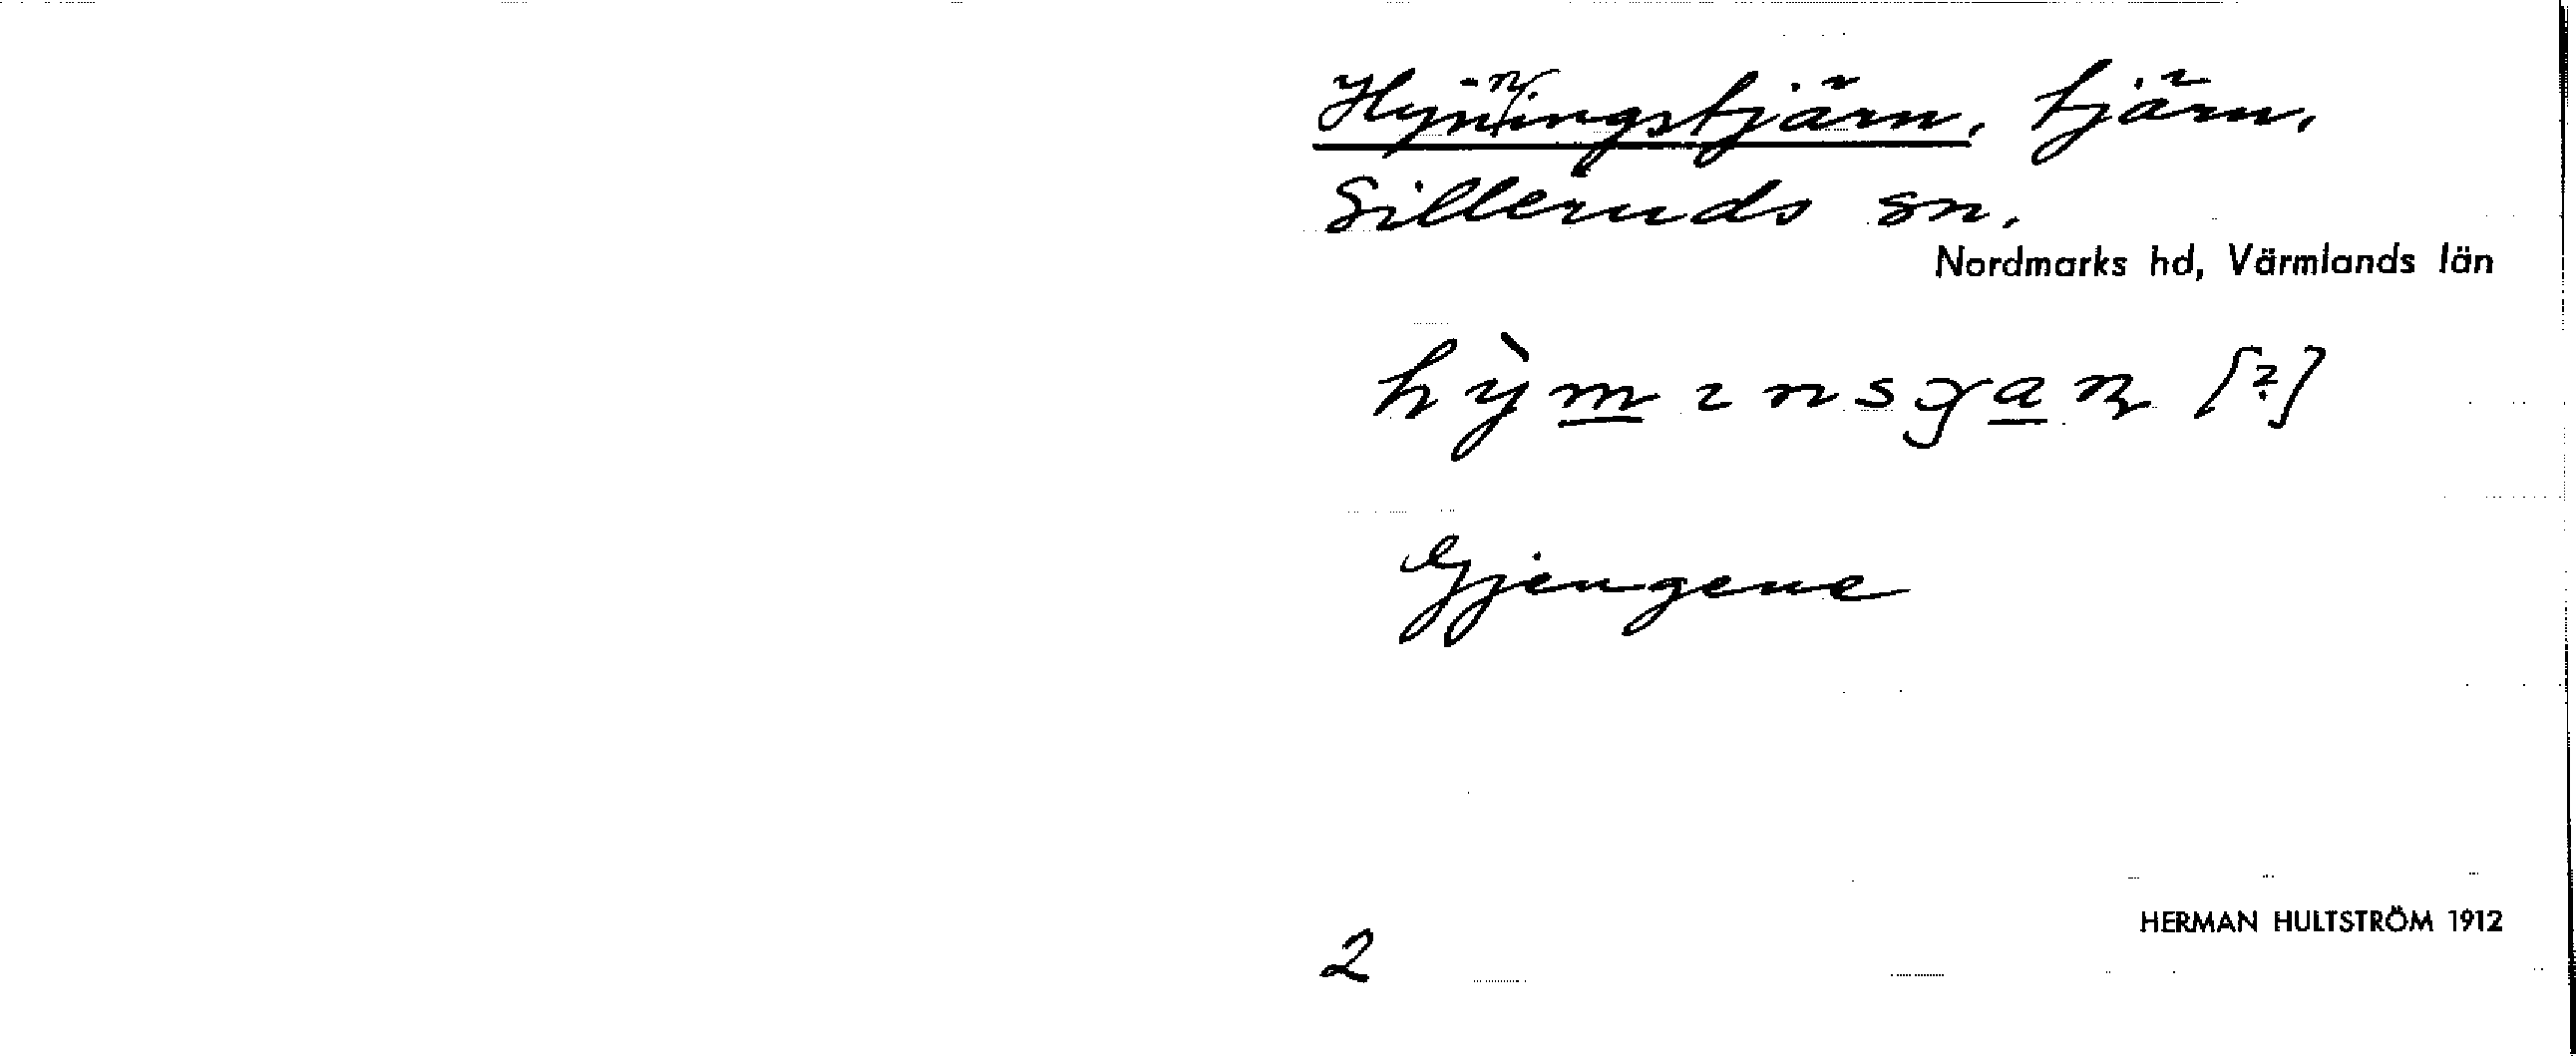 Hynningstjärn, tjärn,
Silleruds sn.
Nordmarks hd, Värmlands län
[?]
Gjengene
HERMAN HULTSTRÖM 1912
2